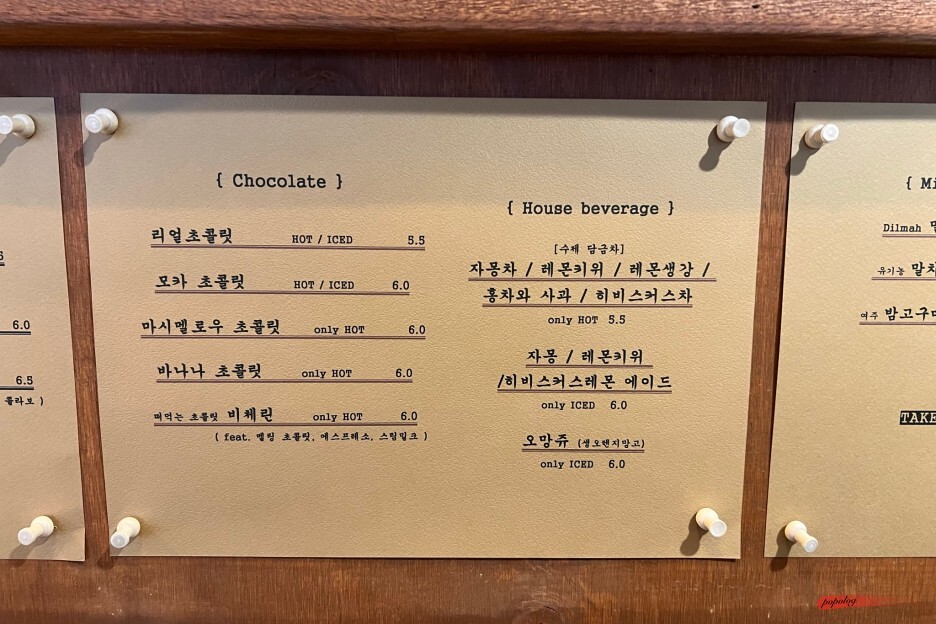 { Chocolate }
리얼초콜릿 HOT / ICED 5.5
모카 초콜릿 HOT / ICED 6.0
마시멜로우 초콜릿 only HOT 6.0
바나나 초콜릿 only HOT 6.0
떠먹는 초콜릿 비체린 only HOT 6.0
( feat. 멜팅 초콜릿, 에스프레소, 스팀밀크 )
{ House beverage }
[수제 담금차]
자몽차 / 레몬키위 / 레몬생강 /
홍차와 사과 / 히비스커스차
only HOT 5.5
자몽 / 레몬키위
/히비스커스레몬 에이드
only ICED 6.0
오망쥬 (생오렌지망고)
only ICED 6.0
6.0
6.5
콜라보 )
{ Mi
Dilmah
유기농 말차
여주 밤고구마
TAKE
popolog